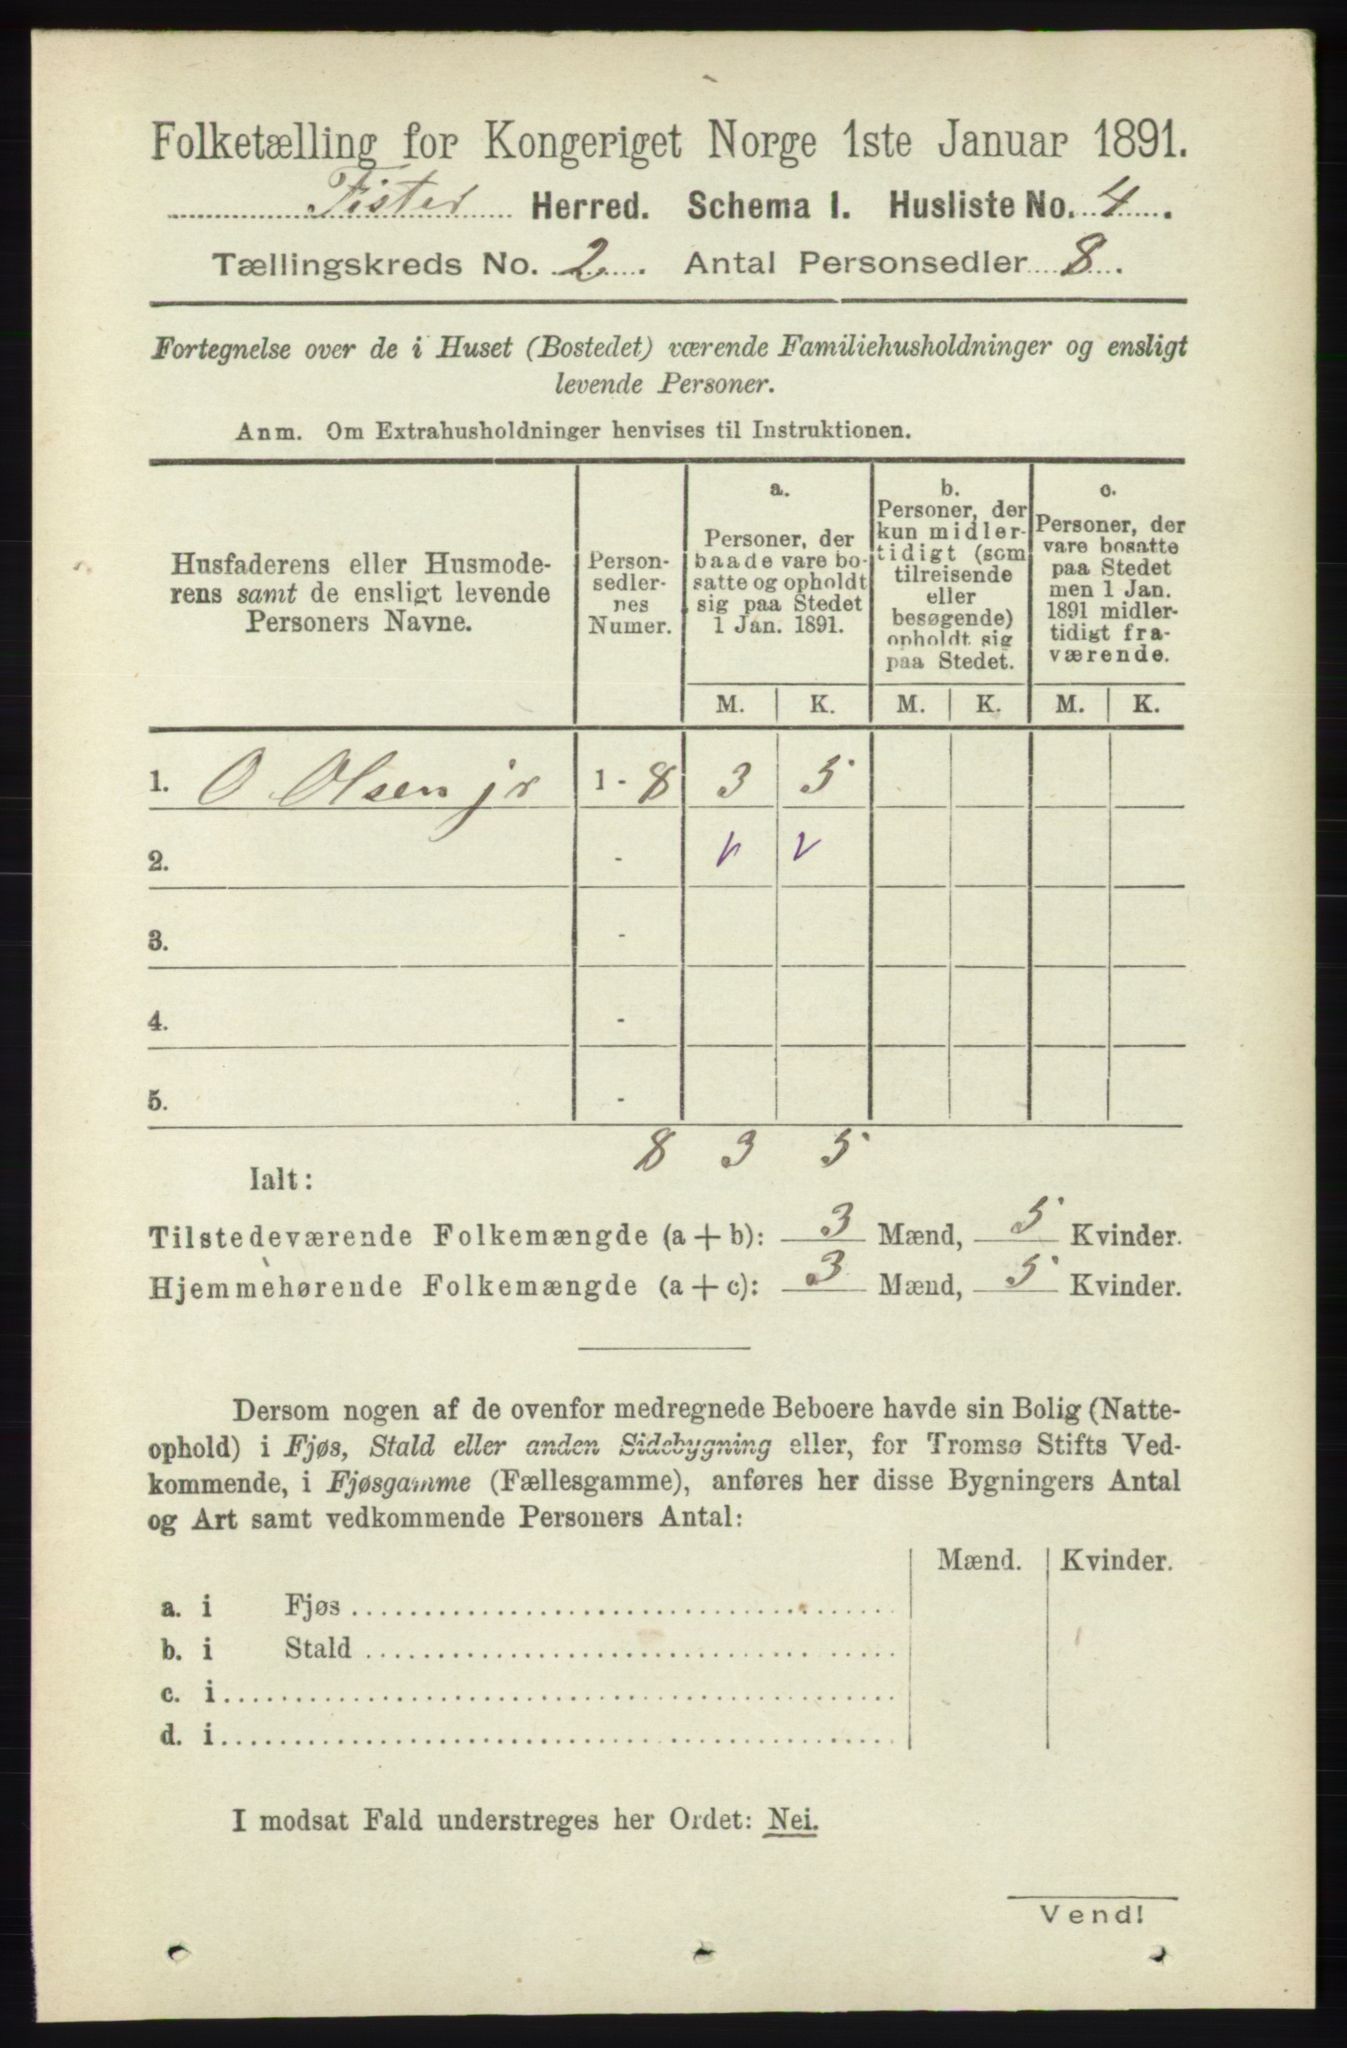 Folketælling for Kongeriget Norge 1ste Januar 1891.
Fister Herred. Schema I. Husliste No. 4.
Tællingskreds No. 2. Antal Personsedler 8.
Fortegnelse over de i Huset (Bostedet) værende Familiehusholdninger og ensligt
levende Personer.
Anm. Om Extrahusholdninger henvises til Instruktionen.
Husfaderens eller Husmode-
rens samt de ensligt levende
Personers Navne.
Person-
sedler-
nes
Numer.
a.
Personer, der
baade vare bo-
satte og opholdt
sig paa Stedet
1 Jan. 1891.
b.
Personer, der
kun midler-
tidigt (som
tilreisende
eller
besøgende)
opholdt sig
paa Stedet.
c.
Personer, der
vare bosatte
paa Stedet
men 1 Jan.
1891 midler-
tidigt fra-
værende.
M. K. M. K. M. K.
1. O Olsen jr 1 - 8 3 5
2. - v v
3. -
4. -
5. -
8 3 5
Ialt:
Tilstedeværende Folkemængde (a + b): 3 Mænd, 5 Kvinder.
Hjemmehørende Folkemængde (a + c): 3 Mænd, 5 Kvinder.
Dersom nogen af de ovenfor medregnede Beboere havde sin Bolig (Natte-
ophold) i Fjøs, Stald eller anden Sidebygning eller, for Tromsø Stifts Ved-
kommende, i Fjøsgamme (Fællesgamme), anføres her disse Bygningers Antal
og Art samt vedkommende Personers Antal:
Mænd. Kvinder.
a. i Fjøs
b. i Stald
c. i
d. i
I modsat Fald understreges her Ordet: Nei.
Vend!